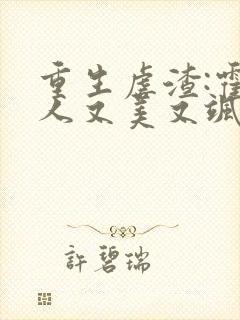 重生虐渣:霍
人又美又飒
許碧瑞